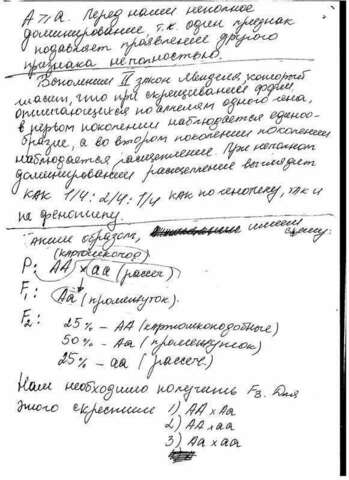 А ⩾ а. Перед нами неполное
доминирование, т.к. один признак
подавляет проявление другого
признака не полностью.
Вспомним II закон Менделя, который
гласит, что при скрещивании форм,
отличающихся по аллелям одного гена,
в первом поколении наблюдается едино-
бразие, а во втором поколении поколении
наблюдается расщепление. При неполном
доминировании расщепление выглядит
как 1/4 : 2/4 : 1/4 как по генотипу, так и
по фенотипу.
Таким образом, имеем схему:
(картошкопод)
P: AA × aa (рассеч)
F1: Aa (промежуток).
F2: 25% – AA (картошкоподобные)
50% – Aa (промежуток)
25% – aa (рассеч.)
Нам необходимо получить F3. Для
этого скрестим 1) AA × Aa
2) AA × aa
3) Aa × aa